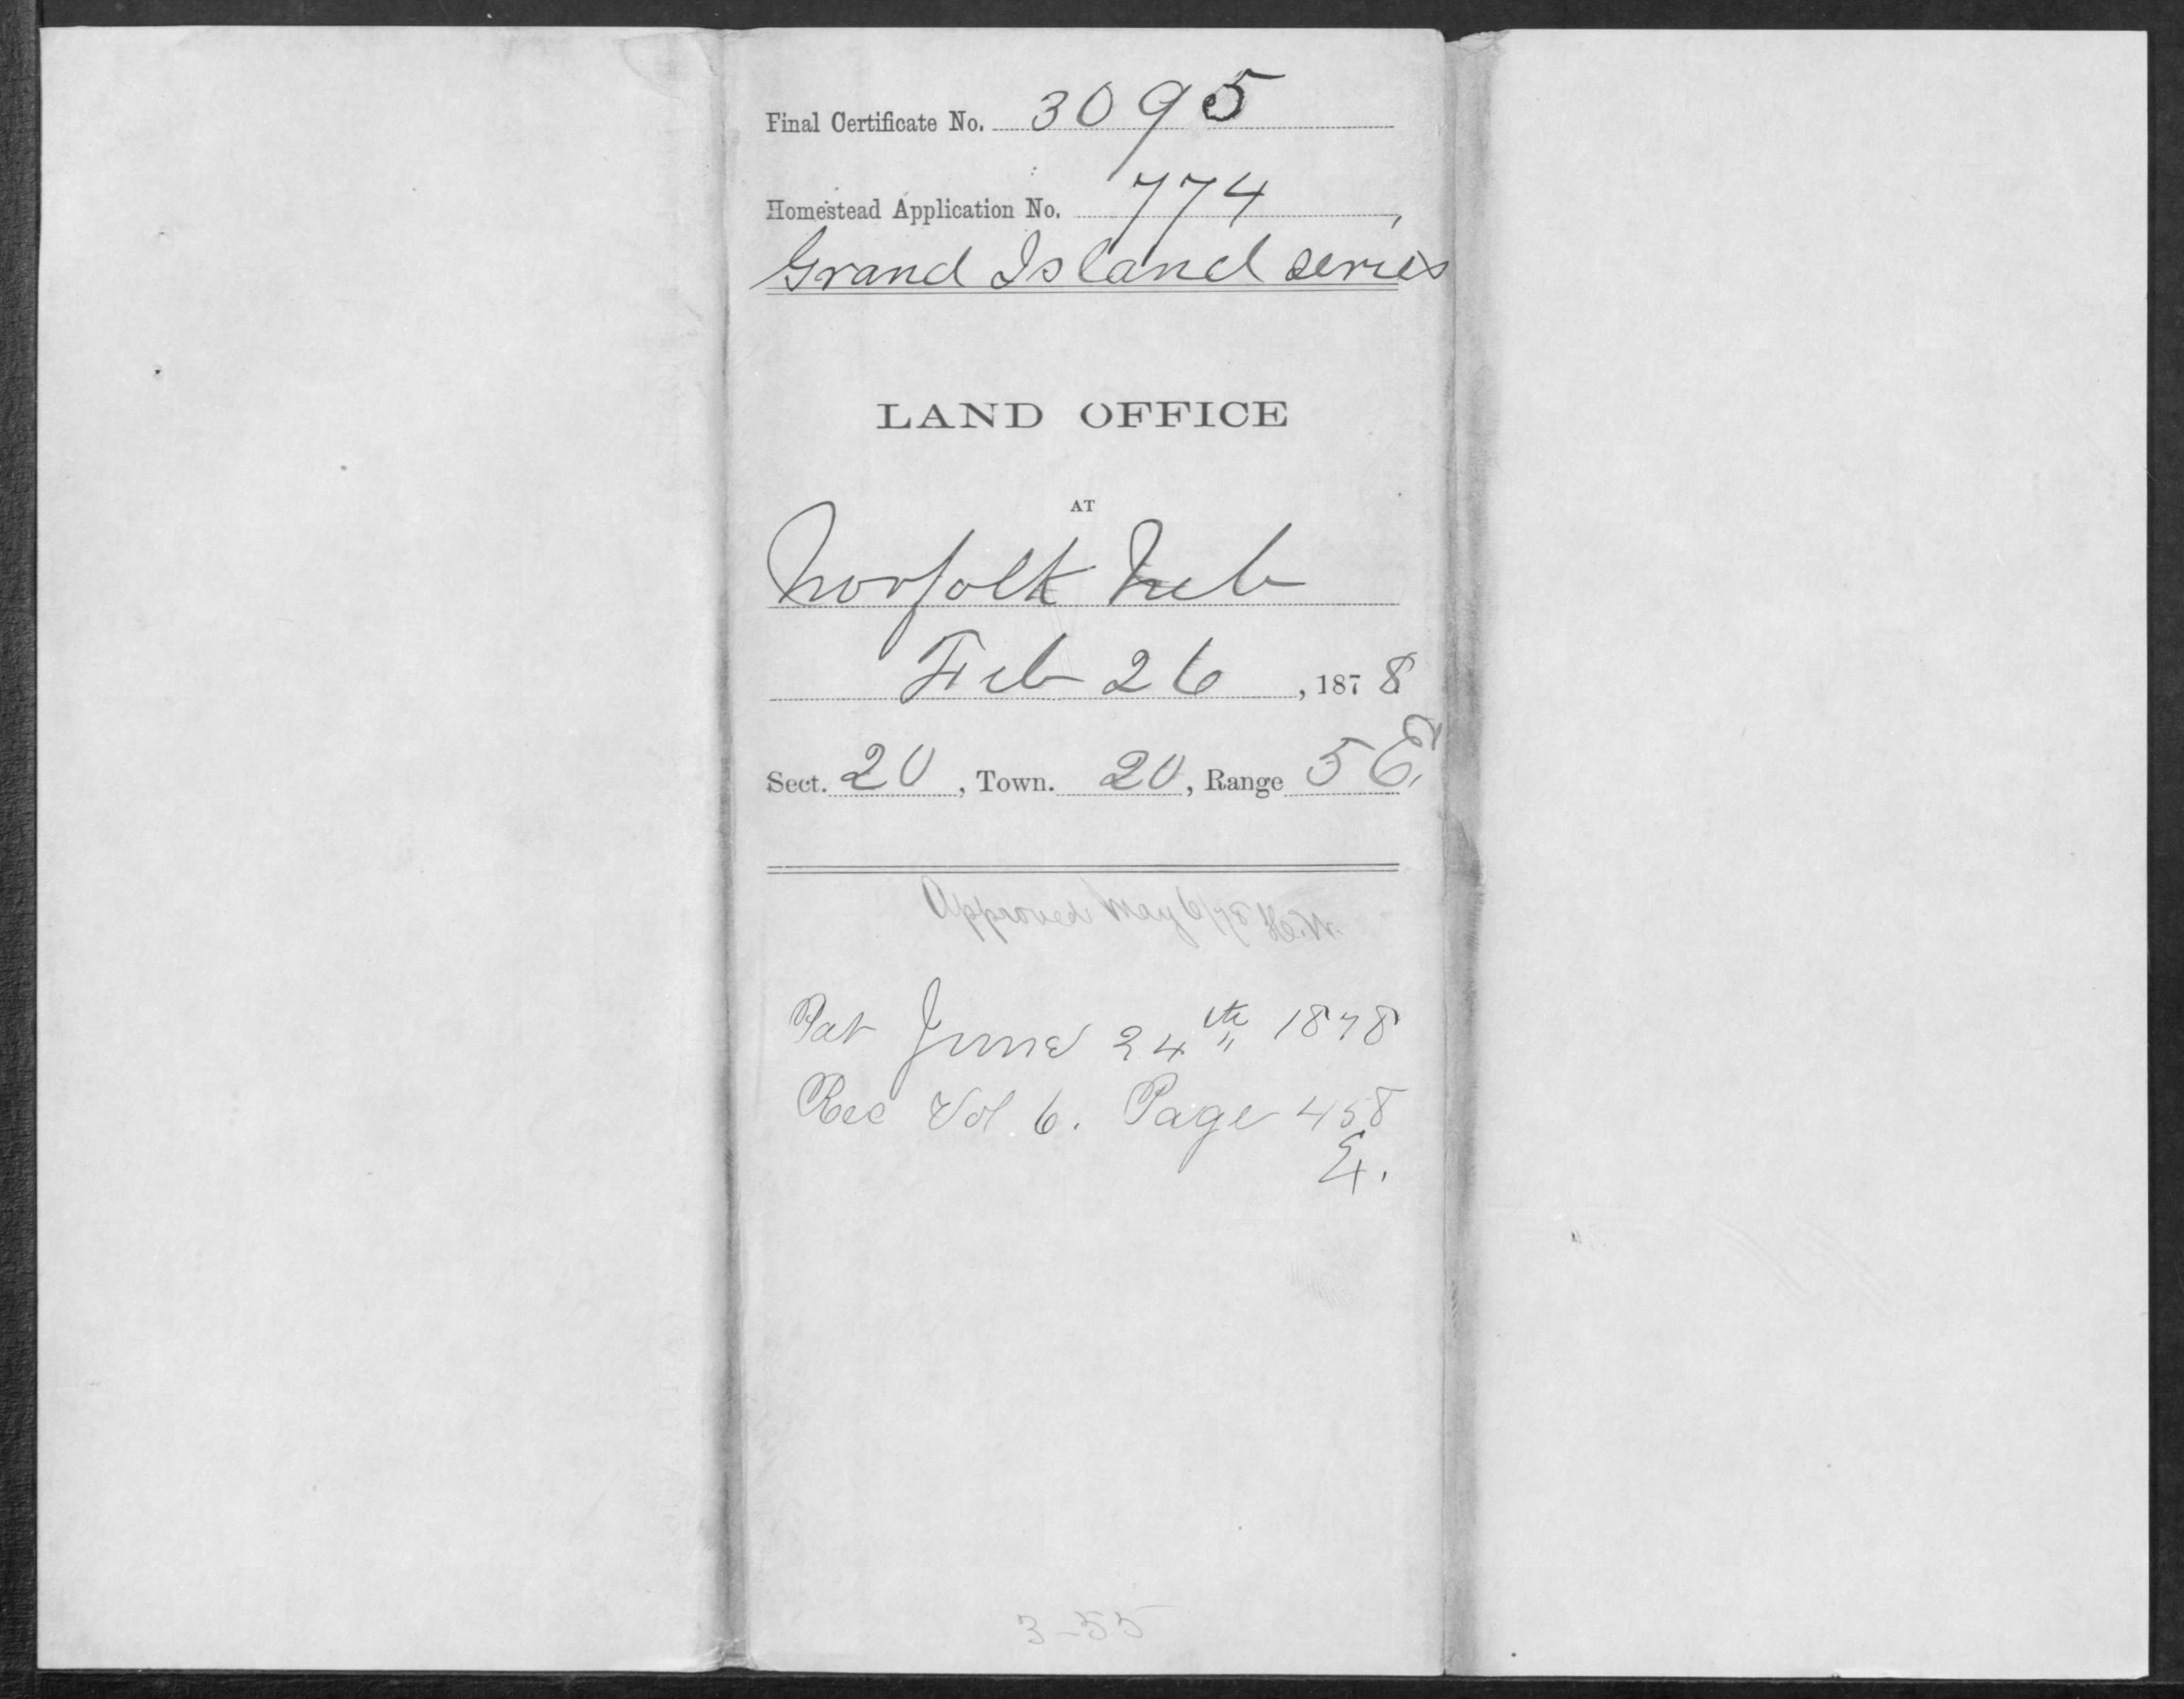 Final Certificate No. 3095
Homestead Application No. 774,
Grand Island series
LAND OFFICE
AT
Norfolk Neb
Feb 26, 1878
Sect. 20, Town. 20, Range 5 E.
Approved May 6/78
Pat June 24th 1878
Rec Vol 6. Page 458
3-55